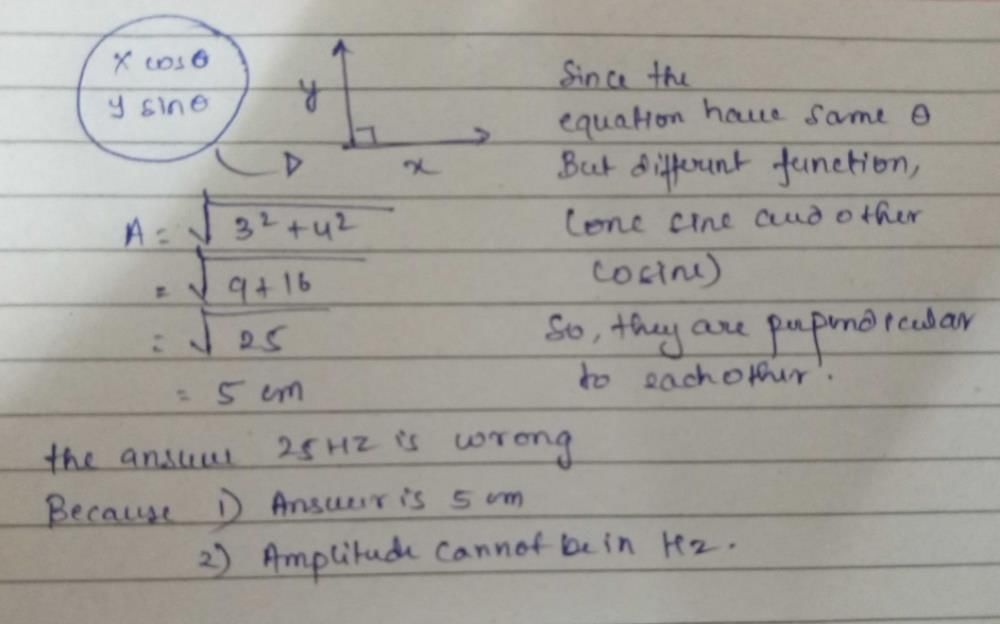 x cosθ
y sinθ
y
x
Since the
equation have same θ
But different function,
(one sine and other
cosine)
So, they are perpendicular
to each other.
A = √3² + 4²
= √9 + 16
= √25
= 5 cm
the answer 25 HZ is wrong
Because 1) Answer is 5 cm
2) Amplitude cannot be in Hz.